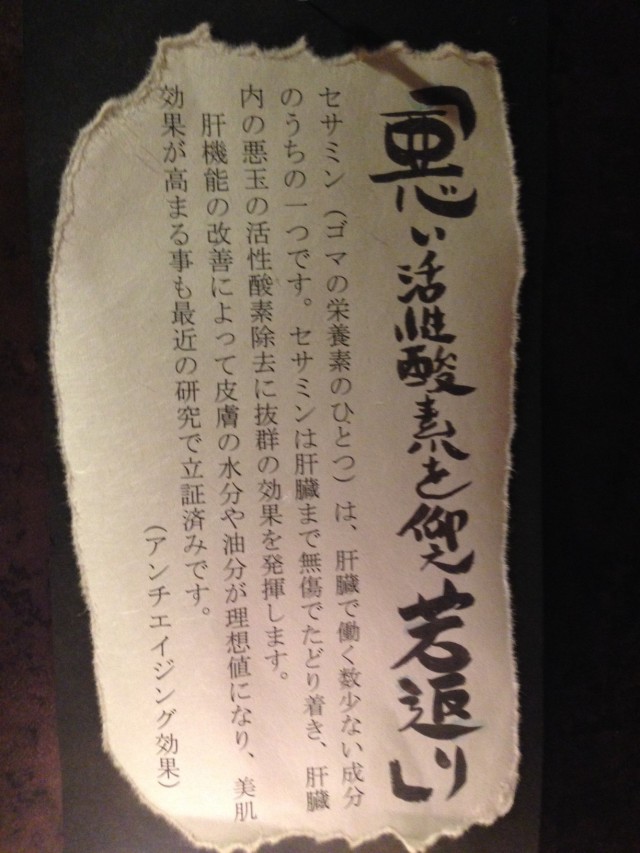 「悪い活性酸素を仰え若返り」
セサミン（ゴマの栄養素のひとつ）は、肝臓で働く数少ない成分
のうちの一つです。セサミンは肝臓まで無傷でたどり着き、肝臓
内の悪玉の活性酸素除去に抜群の効果を発揮します。
肝機能の改善によって皮膚の水分や油分が理想値になり、美肌
効果が高まる事も最近の研究で立証済みです。
（アンチエイジング効果）